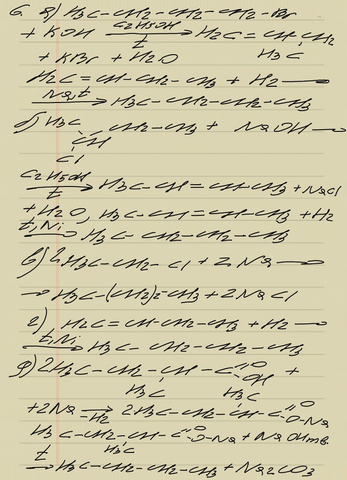 6. а) H3C-CH2-CH2-CH2-Br
+ KOH C2H5OH t → H2C=CH-CH2
H3C
+ KBr + H2O
H2C=CH-CH2-CH3 + H2 →
t → H3C-CH2-CH2-CH3
б) H3C
-CH2-CH3 + NaOH →
CH
Cl
C2H5OH t → H3C-CH=CH-CH3 + NaCl
+ H2O, H3C-CH=CH-CH3 + H2
t, Ni → H3C-CH2-CH2-CH3
в) 2H3C-CH2-Cl + 2Na →
→ H3C-(CH2)2-CH3 + 2NaCl
г) H2C=CH-CH2-CH3 + H2 →
t, Ni → H3C-CH2-CH2-CH3
д) 2H3C-CH2-CH-C=O +
OH
H3C H3C
+2Na -H2 → 2H3C-CH2-CH-C=O
O-Na
H3C-CH2-CH-C=O O-Na + NaOHтв.
H3C
t → H3C-CH2-CH2-CH3 + Na2CO3